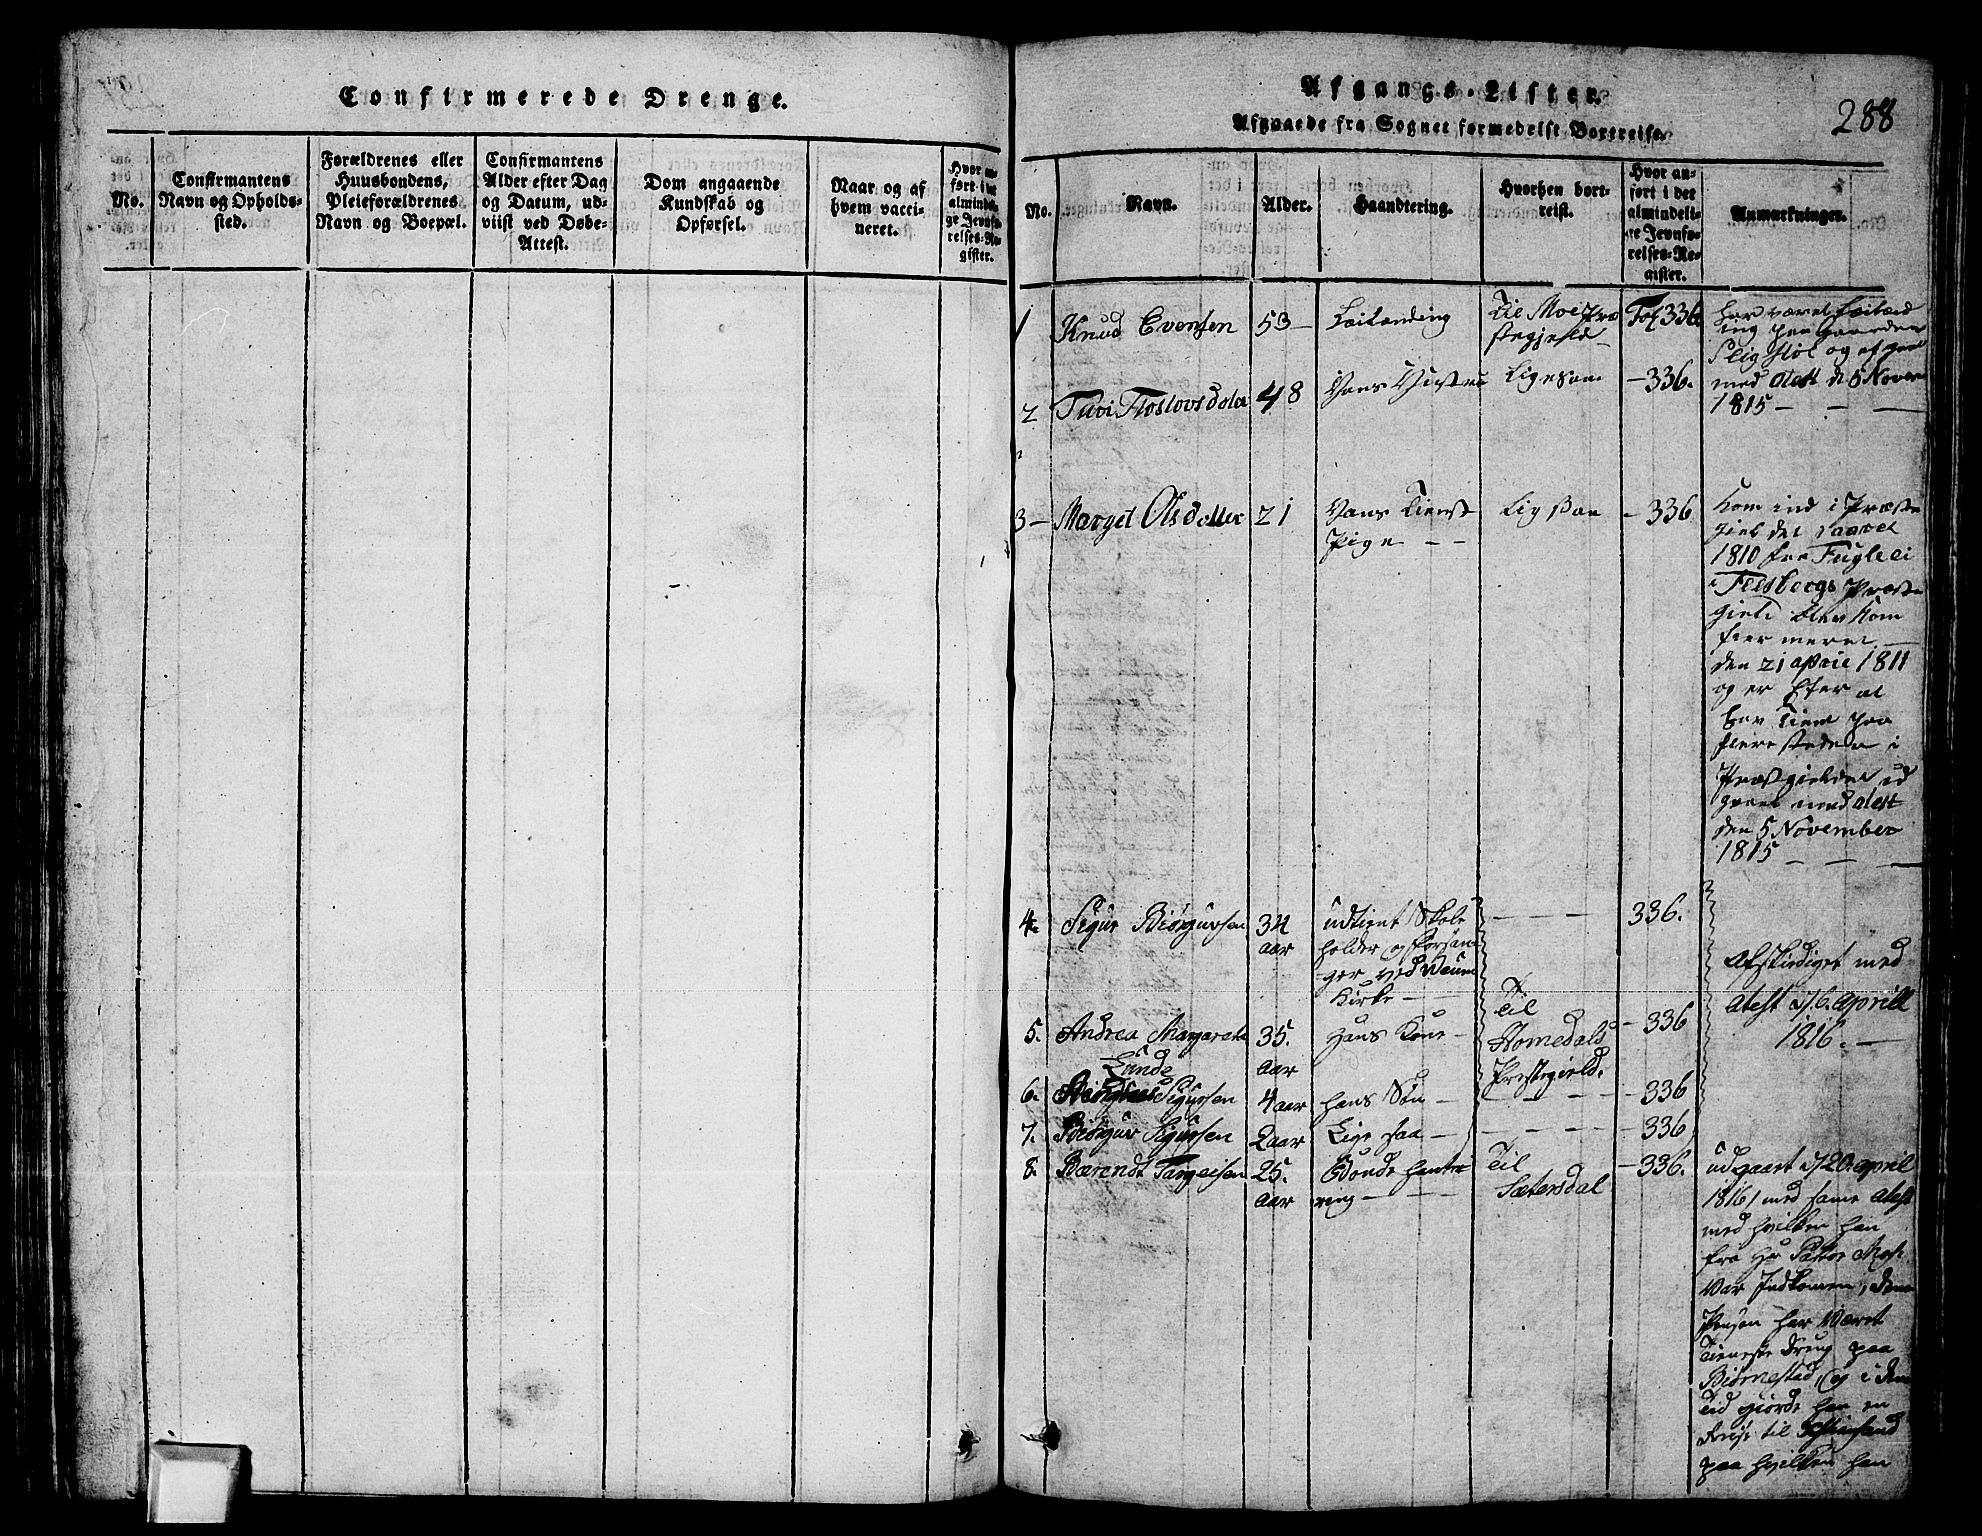 Confirmerede Drenge.
No.
Confirmantens
Navn og Opholds-
sted.
Forældrenes eller
Huusbondens,
Pleieforældrenes
Navn og Boepæl.
Confirmantens
Alder efter Dag
og Datum, ud-
viist ved Døbe-
Attest.
Dom angaaende
Kundskab og
Opførsel.
Naar og af
hvem vacci-
neret.
Hvor an-
ført i det
almindeli-
ge Jevnfø-
relses-Re-
gister.
Afgangs-Lister.
288
Afgaaede fra Sognet formedelst Bortreise.
No.
Navn.
Alder.
Haandtering.
Hvorhen bort-
reist.
Hvor an-
ført i det
almindeli-
ge Jevnfø-
relses-Re-
gister.
Anmærkninger.
1 Knud Evensen 53 Leilending Til Moe Præ
stegjeld Fol 336
Har været Leilænd
ing paa Gaarden
og
med Attest d 5 Novem
1815
2 48 Hans Ligesom 336.
3 Marget Olsdatter 21 Hans Tienest
Pige 336
Kom ind i Præste
gieldet Aaret
1810 fra
Præste
gield blev Kom
den 21 April 1811
og er efter at
hav tient paa
flere steder i
Præstgieldet ud
gaaet med Attest
den 5 November
1815
4. Sigur Biørguvsen 34
aar
udtient Skole
holder og Forsan
ger ved
Kirke
336.
Afskediget med
Atest d 6. Aprill
1816.
5. Andrea Margareta
Lunde
35.
aar
Hans Kone
Til
Homedals
Prestegield.
336
6. Sigursen 4 aar hans Søn 336
7. Biørguv Sigursen 2 aar Lige saa 336
8. Bærendt Targeisen 25.
aar
Bonde hante
ring
Til
Sætersdal
336.
udgaaet d 20 april
1816, med same Atest
med hvilken han
fra Hr Pastor
var Indkomen, denne
Person har været
tieneste Dreng paa
Biørnestad, og i den
Tid giorde han en
Reise til
paa hvilken han